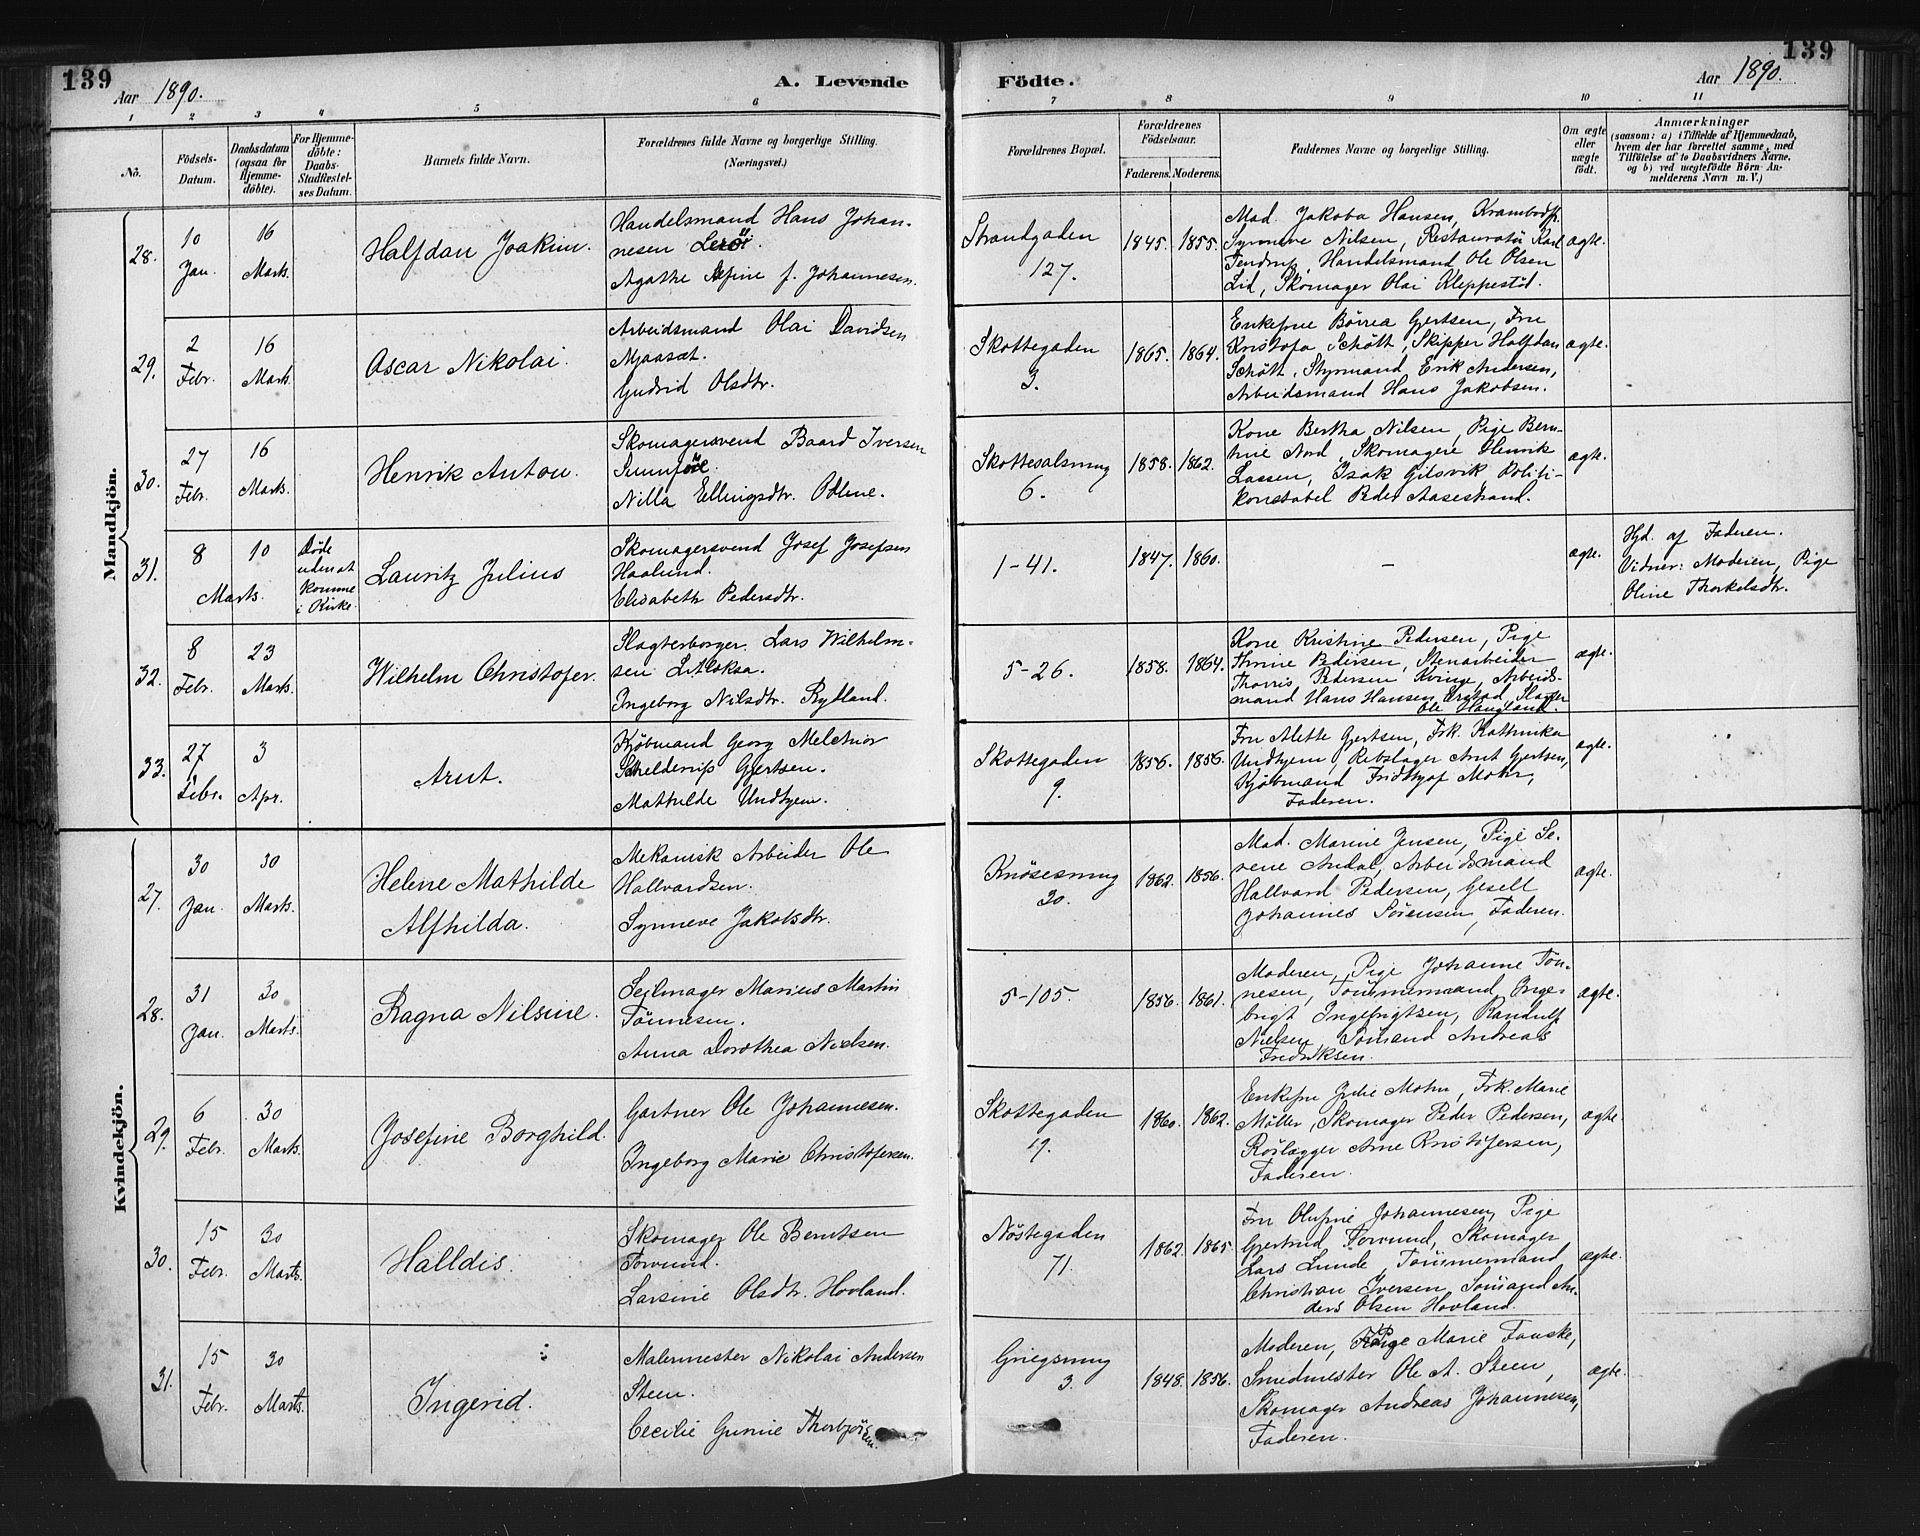 139
Aar 1890.
A. Levende
Födte.
Aar 1890.
139
1 2 3 4 5 6 7 8 9 10 11
No.
Födsels-
Datum.
Daabsdatum
(ogsaa for
Hjemme-
döbte).
For Hjemme-
döbte:
Daabs-
Stadfæstel-
ses Datum.
Barnets fulde Navn.
Forældrenes fulde Navne og borgerlige Stilling.
(Næringsvei.)
Forældrenes Bopæl.
Forældrenes
Födselsaar.
Faderens. Moderens.
Faddernes Navne og borgerlige Stilling.
Om ægte
eller
uægte
födt.
Anmærkninger
(saasom: a) i Tilfælde af Hjemmedaab,
hvem der har forrettet samme, med
Tilföielse af to Daabsvidners Navne,
og b) ved uægtefödte Börn An-
melderens Navn m. V.)
Mandkjön.
28.
10
Jan.
16
Marts.
Halfdan Joakim.
Handelsmand Hans Johan-
nesen Lerøi.
Agathe f. Johannesen.
Strandgaden
127.
1845. 1855.
Mad. Jakoba Hansen,
Synneve Nilsen, Restauratör Karl
Tendrup, Handelsmand Ole Olsen
Lid, Skomager Olai Kleppestö.
ægte.
29.
2
Febr.
16
Marts.
Oscar Nikolai.
Arbeidsmand Olai Davidsen
Mjaasæt.
Gudrid Olsdtr.
Skottegaden
3.
1865. 1864.
Enkefrue Börrea Gjertsen, Fru
Kristofa Schött, Skipper Halfdan
Schött, Styrmand Erik Andersen,
Arbeidsmand Hans Jakobsen.
ægte.
30.
27
Febr.
16
Marts.
Henrik Anton.
Skomagersvend Baard Iversen
Sunnföre.
Nilla Ellingsdtr.
Skottesalmning
6.
1858. 1862.
Kone Bertha Nilsen, Pige Bern-
tine Nord, Skomagere Henrik
Lassen, Isak Gilsvik, Politi-
konstabel Peder Aasestrand.
ægte.
31.
8
10
Marts.
Døde
uden at
komme
i Kirke
Lauritz Julius
Skomagersvend Josef Josefsen
Haalund.
Elisabeth Pedersdtr.
1-41.
1847. 1860.
–
ægte.
Hjd. af Faderen.
Vidner: Moderen, Pige
Oline Thorkelsdtr.
32.
8
Febr.
23
Marts.
Wilhelm Christofer.
Slagterborger Lars Wilhelm-
sen Litleksa.
Ingeborg Nilsdtr. Rylland.
5-26.
1858. 1864.
Kone Kristine Pedersen, Pige
Thrine Pedersen, Stenarbeider
Thorris Pedersen Kvinge, Arbeids-
mand Hans Hansen Slagter
Ole Haugland.
ægte.
33.
27
Febr.
3
Apr.
Arnt.
Kjöbmand Georg Melchior
Schelderup Gjertsen.
Mathilde Undhjem.
Skottegaden
9.
1856. 1856.
Fru Alette Gjertsen, Frk. Kathinka
Undhjem, Rebslager Arnt Gjertsen,
Kjöbmand Fridthjof Mohr,
Faderen.
ægte.
Kvindekjön.
27.
30
Jan.
30
Marts.
Helene Mathilde
Alfhilda.
Mekanisk Arbeider Ole
Hallvardsen.
Synneve Jakobsdtr.
Knösesmug
30.
1862. 1856.
Mad. Marine Jensen, Pige Se-
verine Andal, Arbeidsmand
Hallvard Pedersen, Gesell
Johannes Sörensen, Faderen.
ægte.
28.
31
Jan.
30
Marts.
Ragna Nilsine.
Seilmager Marius Martin
Tönnesen.
Anna Dorothea Nielsen.
5-105.
1856. 1861.
Moderen, Pige Johanne Tön-
nesen, Tömmermænd Inge-
brigt Ingebrigtsen, Randulf
Nielsen, Sömand Andreas
Fredriksen.
ægte.
29.
6
Febr.
30
Marts.
Josefine Borghild.
Gartner Ole Johannesen.
Ingeborg Marie Christofersen.
Skottegaden
19.
1860. 1862.
Enkefru Julie Mohn, Frk. Marie
Möller, Skomager Peder Pedersen,
Rörlægger Arne Kristofersen,
Faderen.
ægte.
30.
15
Febr.
30
Marts.
Halldis.
Skomager Ole Berntsen
Torvund.
Larsine Olsdtr. Hovland.
Nöstegaden
71.
1862. 1865.
Fru Olufine Johannesen, Pige
Gjertrud Torvund, Skomager
Lars Lunde, Tömmermand
Christian Iversen, Sömand An-
ders Olsen Hovland.
ægte.
31.
15
Febr.
30
Marts.
Ingerid.
Malermester Nikolai Andersen
Steen.
Cecilie Gurine Thorbjörnsen.
Griegsmug
3.
1848. 1856.
Moderen, Pige Marie Fauske,
Smedmester Ole A. Steen,
Skomager Andreas Johannesen,
Faderen.
ægte.